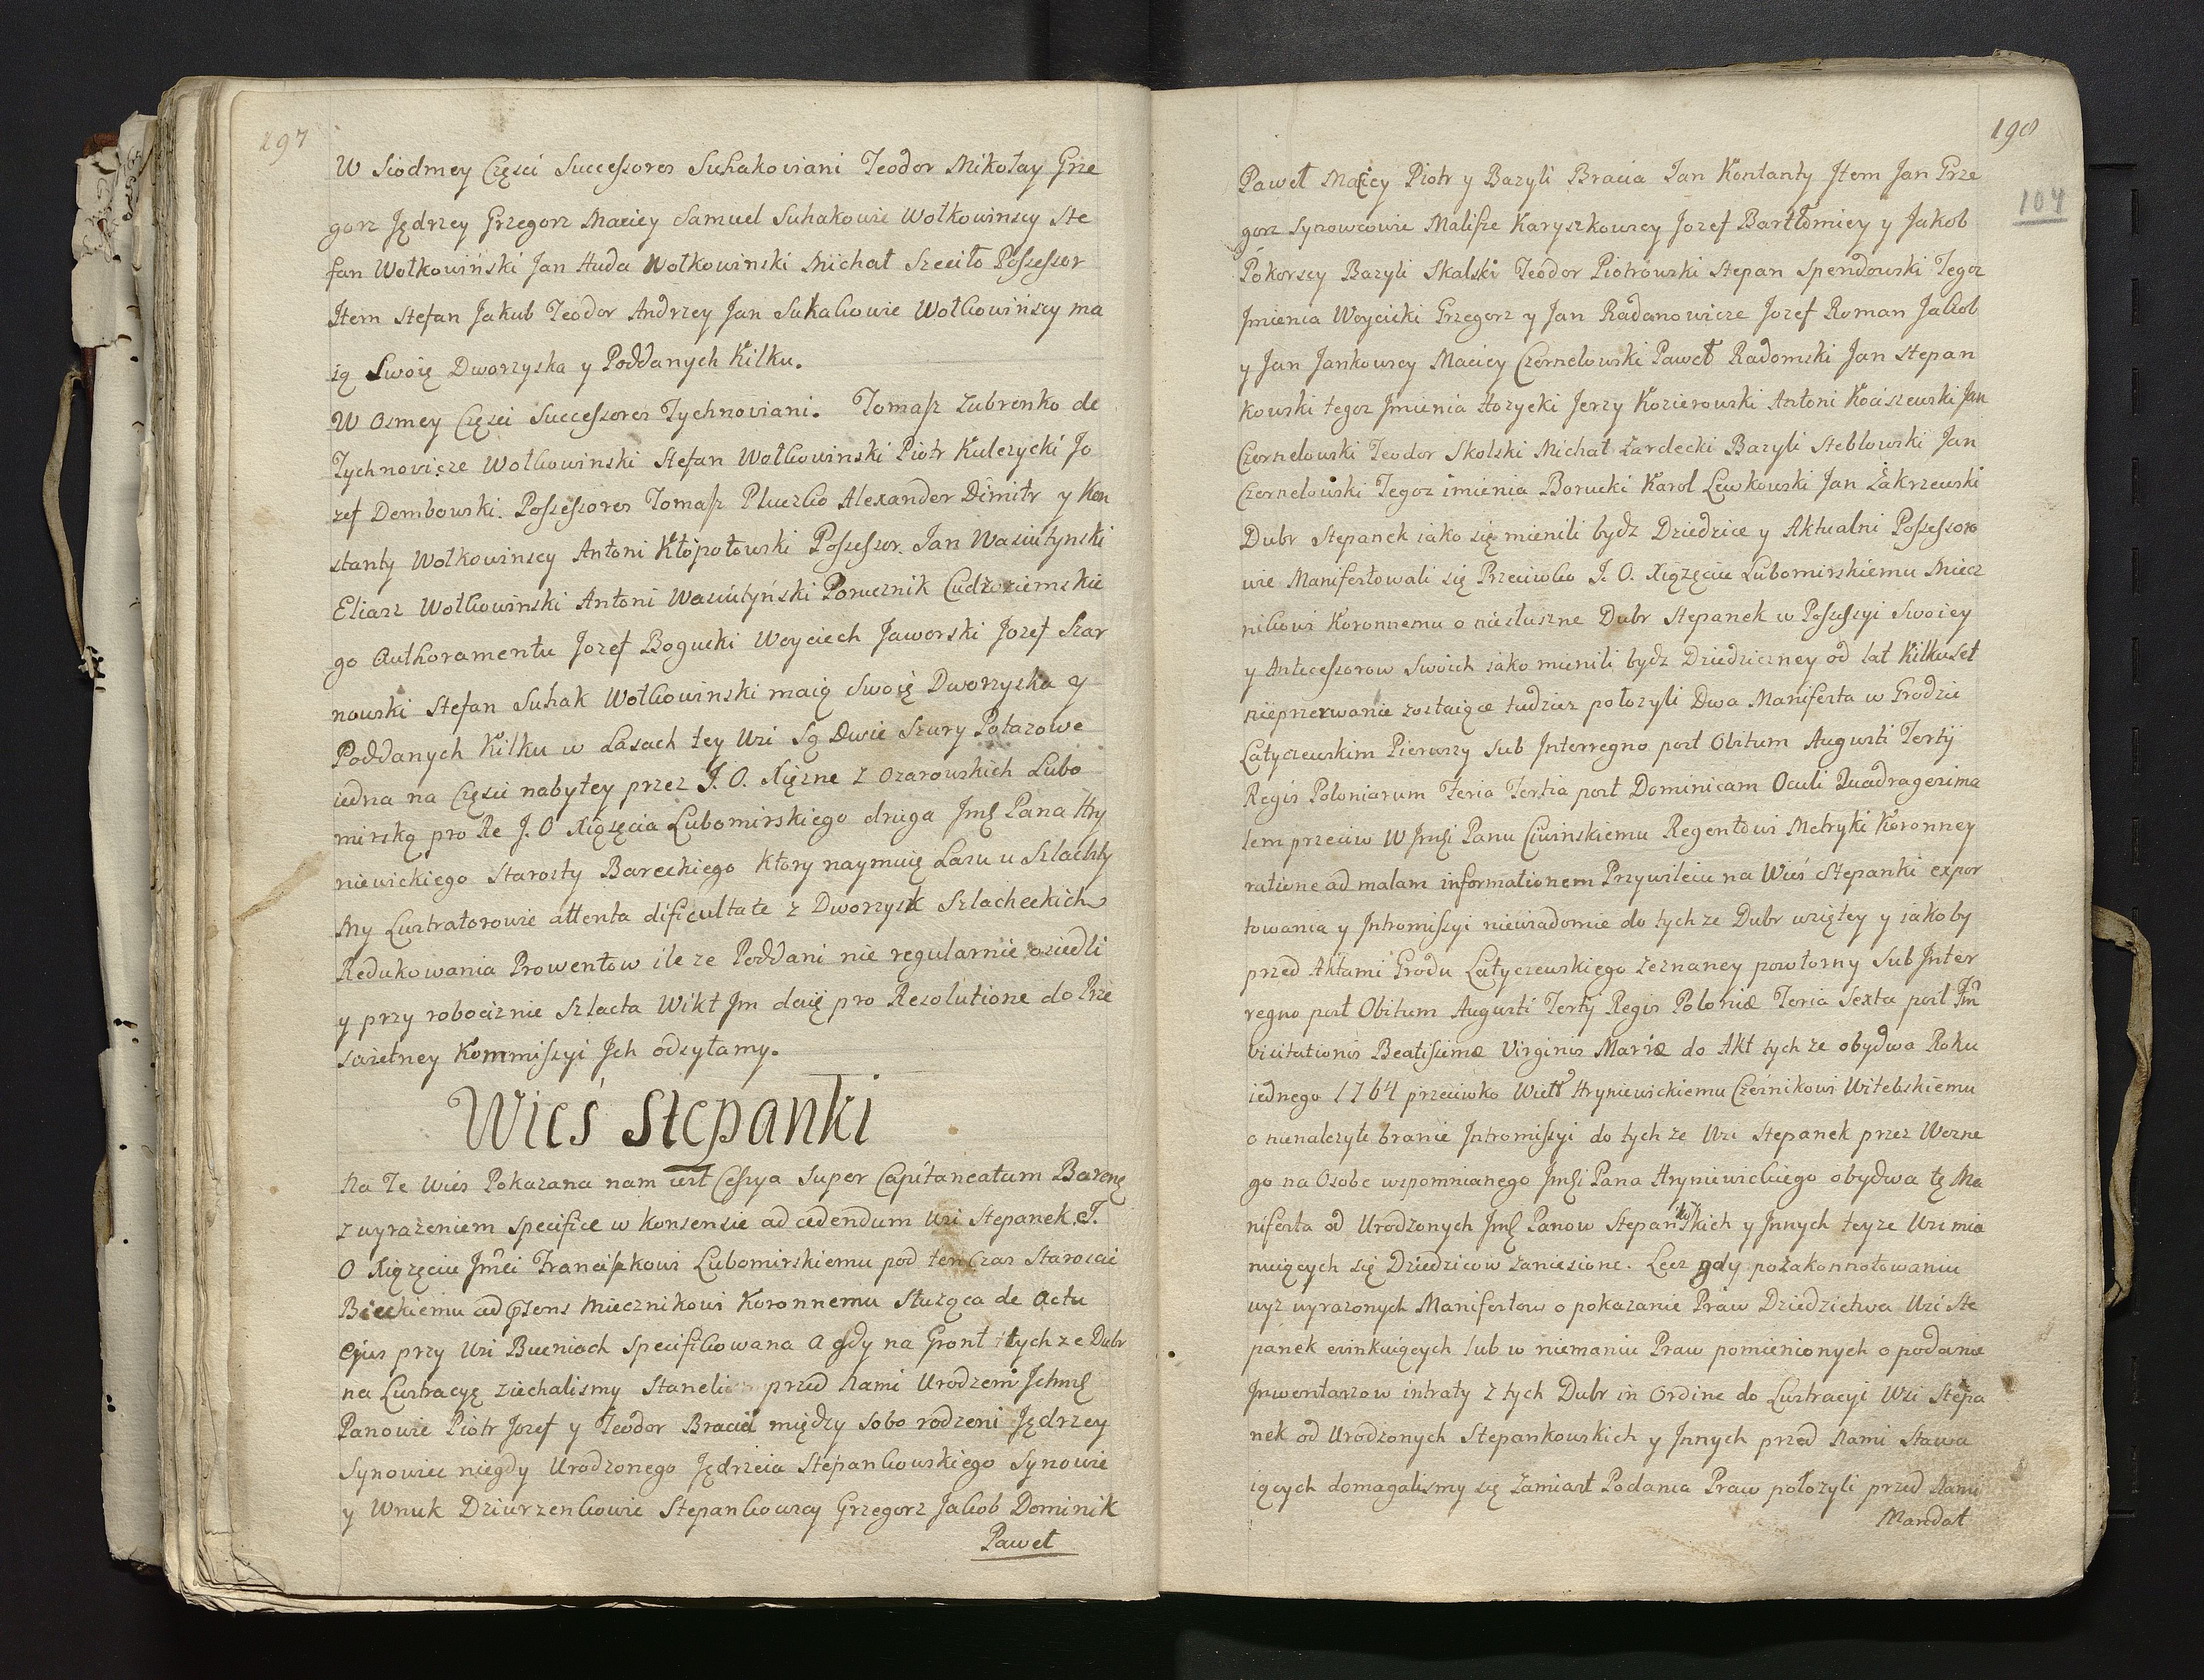 197
W Siodmey Częsci Successores Suhakoviani Teodor Mikołay Grze
gorz Jędrzey Grzegorz Maciey Samuel Suhakowie Wołkowinscy Ste
fan Wołkowiński Jan Huda Wołkowinski Michał Szeciło Possessor
Item Stefan Jakub Teodor Andrzey Jan Sukakowie Wołkowińscy ma
ią Swoię Dworzyska y Poddanych Kilku.
W Osmey Częsci Successores Tychnoviani. Tomasz Zubrenko de
Tychnovicze Wołkowinski Stefan Wołkowinski Piotr Kulczycki Jo
zef Dembowski. Possessores Tomasz Pluczko Alexander Dimitr y Kon
stanty Wołkowinscy Antoni Kłopotowski Possessor. Jan Wasiutynski
Eliasz Wołkowinski Antoni Wasiutyński Porucznik Cudzoziemskie
go Authoramentu Jozef Bogucki Woyciech Jaworski Jozef Szar
nowski Stefan Suhak Wołkowinski maią Swoię Dworzyska y
Poddanych Kilku w Lasach tey Wsi Są Dwie Szury Potazowe
iedna na Częsci nabytey przez J. O. Xiężne z Ozarowskich Lubo
mirską pro Re J. O Xiążęcia Lubomirskiego druga Jmść Pana Hry
niewickiego Starosty Bareckiego Ktory naymuię Lasu u Szlachty
My Lustratorowie attenta dificultate z Dworzysk Szlacheckich
Redukowania Prowentow ile ze Poddani nie regularnie osiedli
y przy robociznie Szlacta Wikt Jm daią pro Resolutione do Prze
swietney Kommissyi Jch odsyłamy.
Wieś Stepanki
Na Te Wies Pokazana nam iest Cessya Super Capitaneatum Barenę
z wyrazeniem specifice w Konsensie ad cedendum Wsi Stepanek J.
O Xiążęciu Jmci Franciszkowi Lubomirskiemu pod ten Czas Staroscie
Bieckiemu ad psens Miecznikowi Koronnemu Słuząca de Actu
Ejus przy Wsi Bucniach specifikowana a gdy na Gront tych ze Dubr
na Lustracyę ziechalismy Staneli przed Nami Urodzeni Jchmść
Panowie Piotr Jozef y Teodor Bracia między sobo rodzeni Jędrzey
Synowiec niegdy Urodzonego Jędrzeia Stepankowskiego Synowie
y Wnuk Dziurzenkowie Stepankowscy Grzegorz Jakob Dominik
Paweł
198
104
Paweł Maciey Piotr y Bazyli Bracia Jan Konstanty Jtem Jan Grze
gorz Synowcowie Malisze Karyszkowscy Jozef Bartłomiey y Jakob
Pokorscy Bazyli Skalski Teodor Piotrowski Stepan Spendowski Tegoz
Jmienia Woycicki Grzegorz y Jan Radanowicze Jozef Roman Jakob
y Jan Jankowscy Maciey Czernelowski Paweł Radomski Jan Stepan
kowski tegoz Jmienia Hozycki Jerzy Kozierowski Antoni Kociszewski Jan
Czernelowski Teodor Skolski Michał Zardecki Bazyli Steblowski Jan
Czernelowski Tegoz imienia Borucki Karol Lewkowski Jan Zakrzewski
Dubr Stepanek iako się mienili bydz Dziedzice y Aktualni Possessoro
wie Manifestowali się Przeciwko J. O. Xiążęciu Lubomirskiemu Miecz
nikowi Koronnemu o niesłuszne Dubr Stepanek w Possessyi Swoiey
y Antecessorow Swoich iako mienili bydz Dziedziczney od lat Kilkuset
nieprzerwanie zostaiące tudziez połozyli Dwa Manifesta w Grodzie
Latyczewskim Pierwszy Sub Interregno post Obitum Augusti Tertij
Regis Poloniarum Feria Tertia post Dominicam Oculi Quadragesima
lem przeciw W Jmśći Panu Ciwinskiemu Regentowi Metryki Koronney
ratione ad malam informationem Przywileiu na Wieś Stepanki expor
towania y Jntromissyi niewiadomie do tych ze Dubr wziętey y iakoby
przed Aktami Grodu Latyczewskiego zeznaney powtorny Sub Inter
regno post Obitum Augusti Tertij Regis Poloniæ Feria Sexta post Fm
Visitationis Beatissimæ Virginis Mariæ do Akt tych ze obydwa Roku
iednego 1764 przeciwko Wielo Hryniewickiemu Cześnikowi Witebskiemu
o nienalezyte branie Jntromissyi do tych ze Wsi Stepanek przez Wozne
go na Osobe wspomnianego Jmśći Pana Hryniewickiego obydwa tę Ma
nifesta od Urodzonych Jmść Panow Stepankowskich y Jnnych teyze Wsi mia
nuiących się Dziedzicow zaniesione. Lecz gdy pozakonnotowaniu
wyz wyrazonych Manifestow o pokazanie Praw Dziedzictwa Wsi Ste
panek ewinkuiących lub w niemaniu Praw pomienionych o podanie
Jnwentarzow intraty z tych Dubr in Ordine do Lustracyi Wsi Stepa
nek od Urodzonych Stepankowskich y Jnnych przed Nami Stawa
iących domagalismy się Zamiast Podania Praw połozyli przed Nami
Mandat